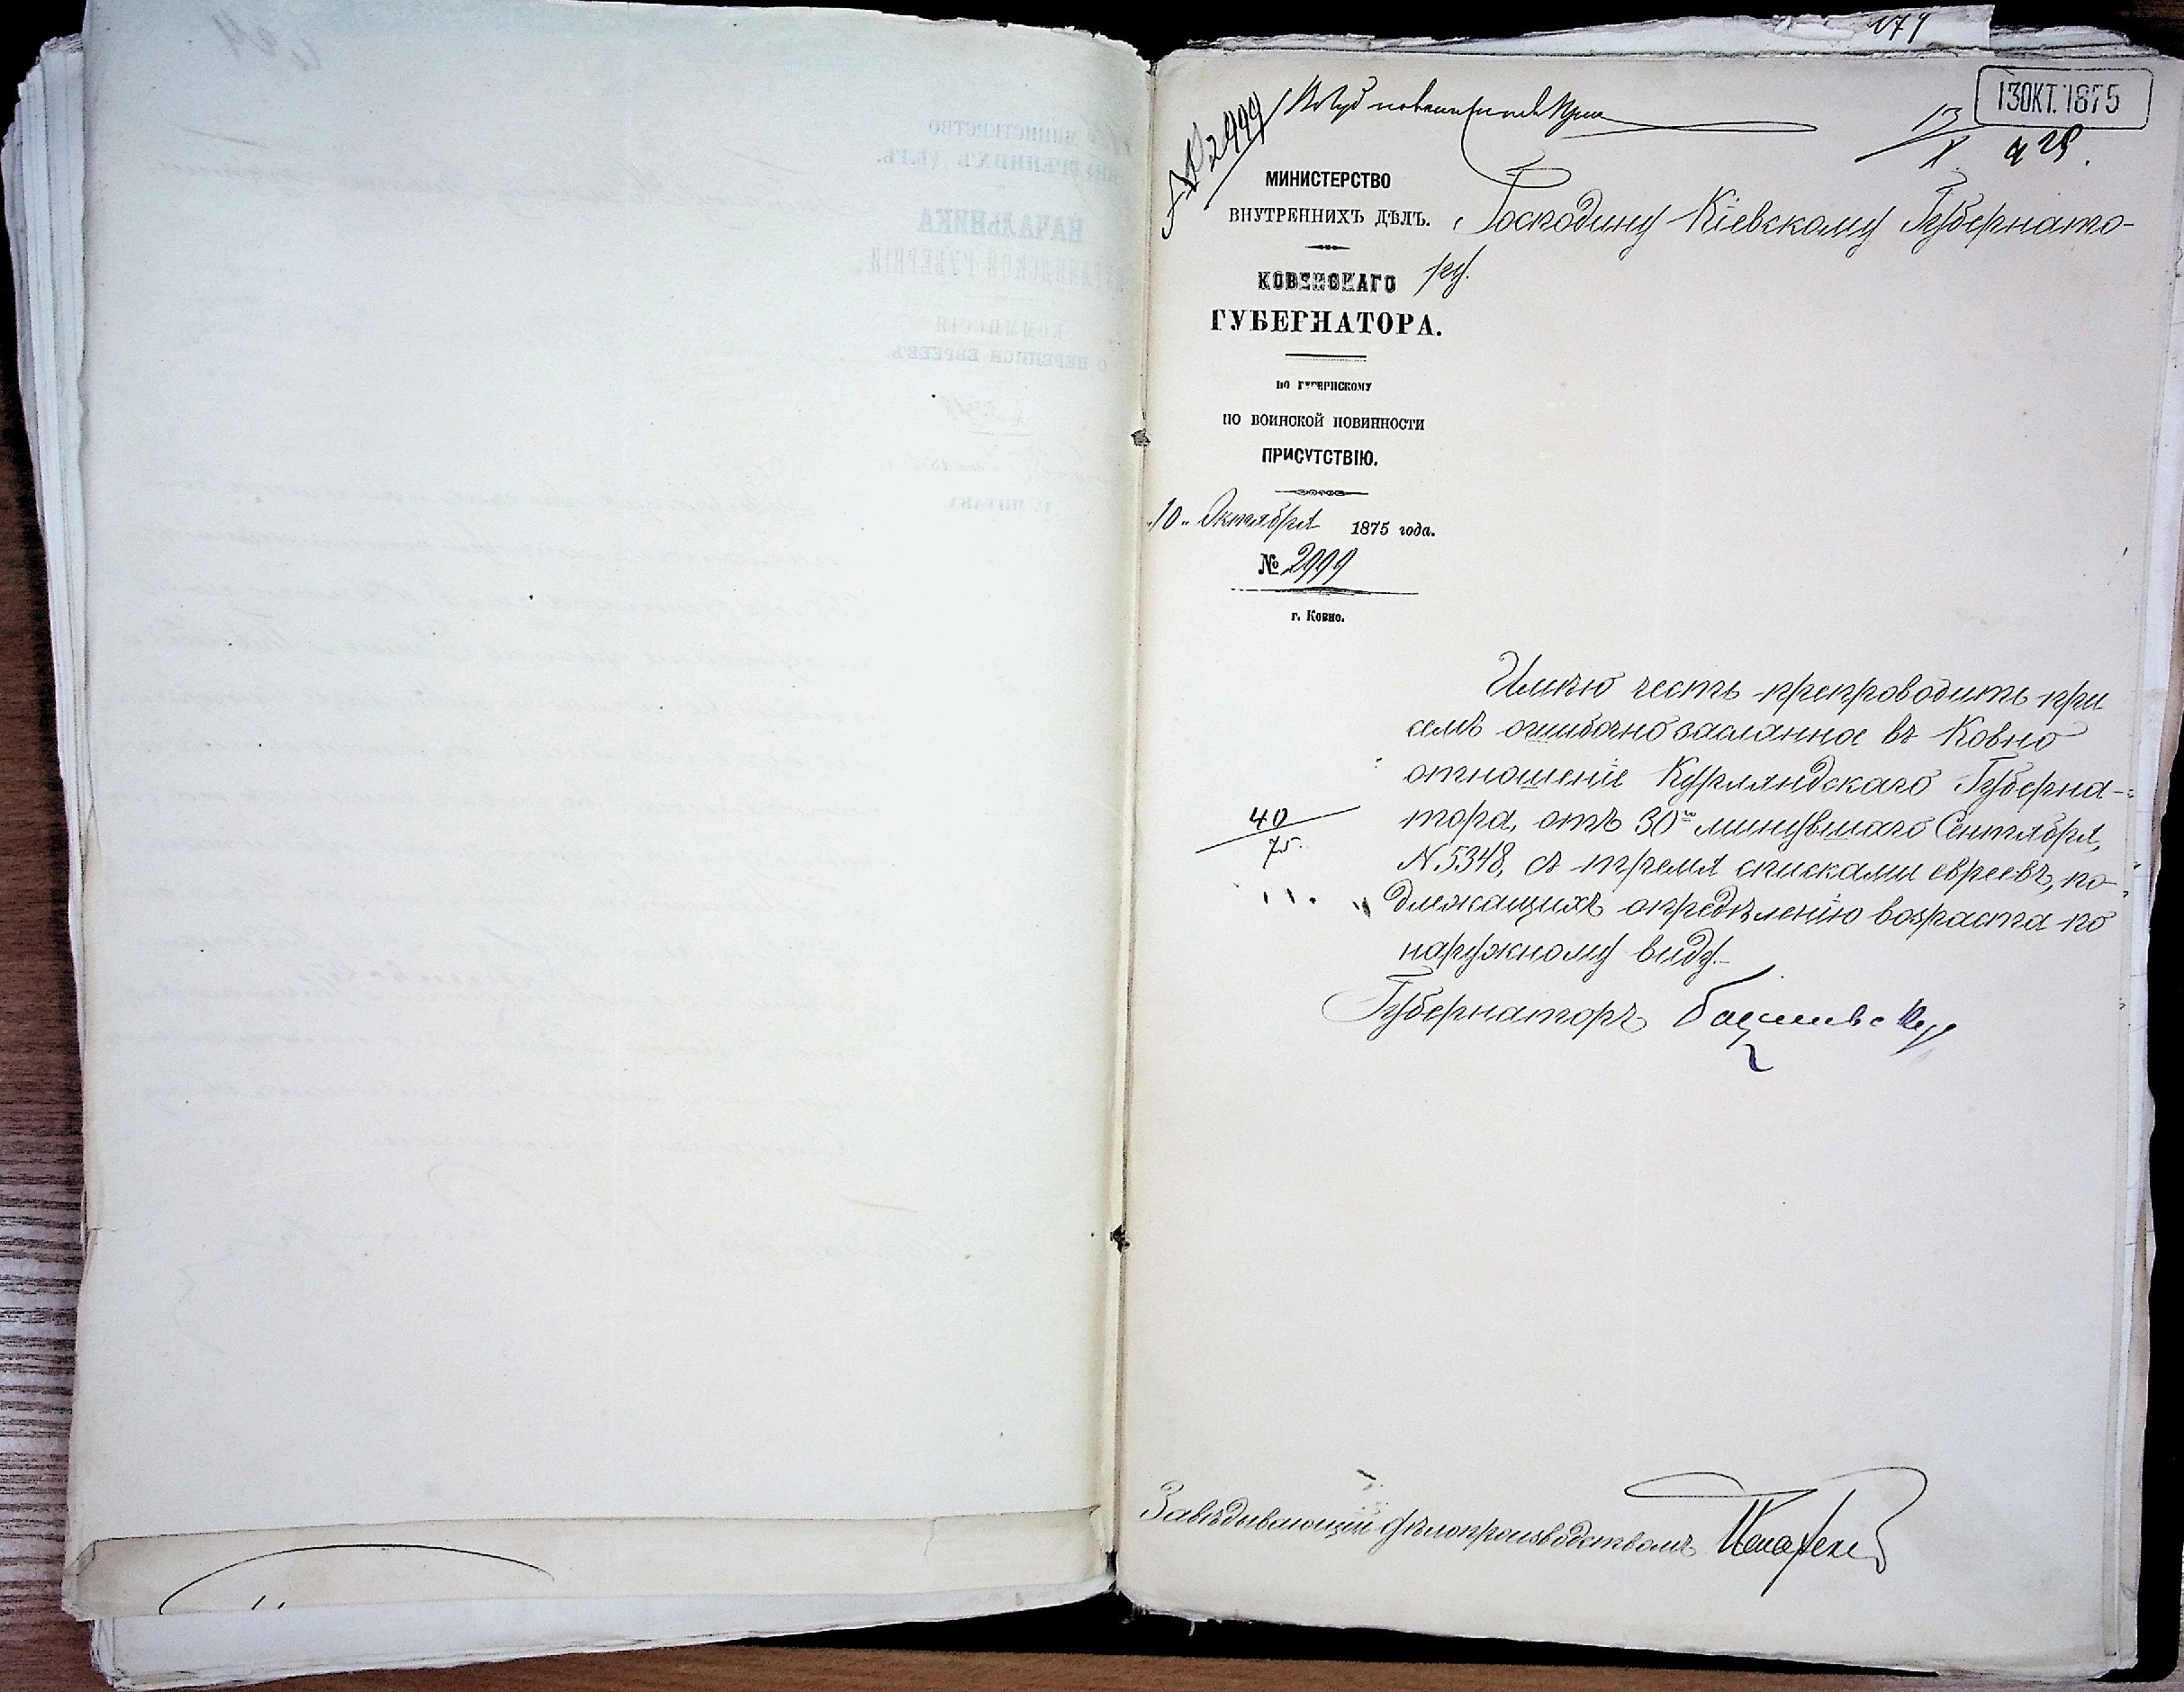 179
13 ОКТ. 1875
№ 2999
13/X
МИНИСТЕРСТВО
ВНУТРЕННИХЪ ДѢЛЪ.
Господину Кіевскому Губернато-
ру.
КОВЕНСКАГО
ГУБЕРНАТОРА.
ПО ГУБЕРНСКОМУ
ПО ВОИНСКОЙ ПОВИННОСТИ
ПРИСУТСТВІЮ.
„10„ Октября 1875 года.
№ 2999
г. Ковно.
Имѣю честь препроводить при
семъ ошибочно засланное въ Ковно
отношеніе Курляндскаго Губерна-
тора, отъ 30го минувшаго Сентября,
N. 5348, съ тремя списками евреевъ, по-
длежащихъ опредѣленію возраста по
наружному виду.
40/75.
Губернаторъ
Завѣдывающій дѣлопроизводствомъ